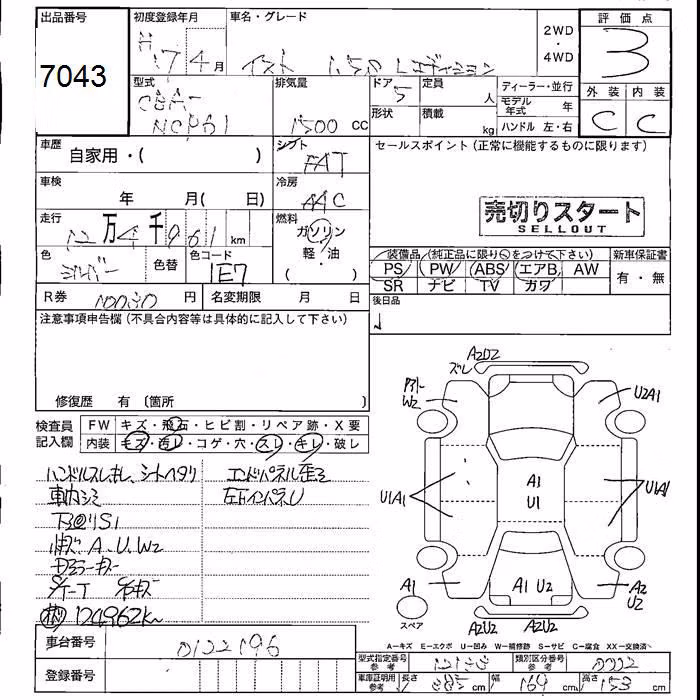 出品番号
7043
初度登録年月
H 17 4月
車名・グレード
イスト 1.5 Lエディション
2WD
・
4WD
評価点
3
外装 内装
C C
型式
CBA-
NCP61
排気量
1500 CC
ドア
5
定員
人
形状
積載
kg
ディーラー・並行
モデル年式 年
ハンドル 左・右
車歴
自家用・( )
シフト
FAT
セールスポイント(正常に機能するものに限ります)
車検
年 月( 日)
冷房
AAC
売切りスタート
SELLOUT
走行
12万4千961 km
燃料
ガソリン
軽・油
( )
色
シルバー
色替
色コード
1E7
装備品(純正品に限り○をつけて下さい)
新車保証書
PS PW ABS エアB AW
SR ナビ TV カワ
有・無
R券
円
名変期限 月 日
後日品
注意事項申告欄(不具合内容等は具体的に記入して下さい)
修復歴 有〔箇所 〕
検査員
記入欄
FW キズ・飛石・ヒビ割・リペア跡・X要
内装 キズ・汚レ・コゲ・穴・スレ・キレ・破レ
ハンドルスレキレ、シートヘタリ
車内シミ
下回りS1
A.U.W2
124962K
エンドパネル歪ミ
左FインパネU
A2D2
ズレ
W2
U2A1
U1A1
A1
U1
U1A1
A1
A1 U2
A2
U2
スペア
A2U2
A2U2
A―キズ E―エクボ U―凹み W―補修跡 S―サビ C―腐食 XX―交換済
車台番号
0122196
登録番号
型式指定番号
参考
類別区分番号
参考
車庫証明用
参考
長さ 385 cm
幅 169 cm
高さ 153 cm